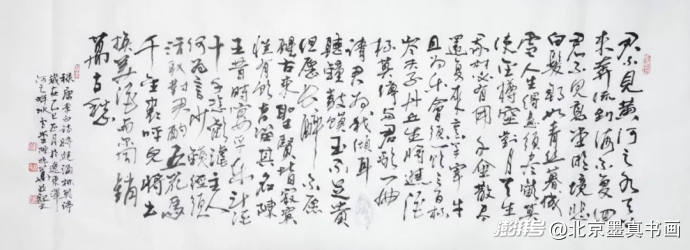 君不見黄河之水天上
來奔流到海不復回
君不見高堂明鏡悲
白髮朝如青絲暮成
雪人生得意須盡歡莫
使金樽空對月天生
我材必有用千金散盡
還復來烹羊宰牛
且為樂會須一飲三百杯
岑夫子丹丘生將進酒
杯莫停與君歌一曲
請君為我傾耳
聽鐘鼓饌玉不足貴
但願長醉不願
醒古來聖賢皆寂寞
惟有飲者留其名陳
王昔時宴平樂斗酒
十千恣歡謔主人
何為言少錢徑須
沽取對君酌五花馬
千金裘呼兒將出
換美酒與爾同銷
萬古愁
唐李白詩將進酒
澎湃号 @北京墨真书画